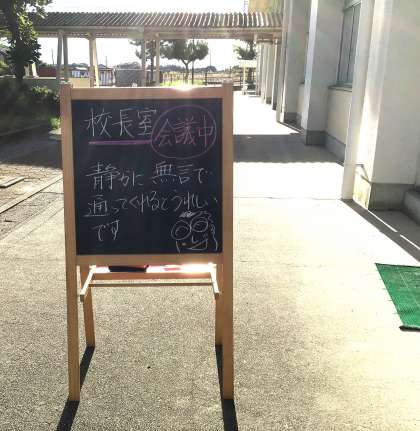 校長室 会議中
静かに 無言で
通ってくれるとうれしい
です